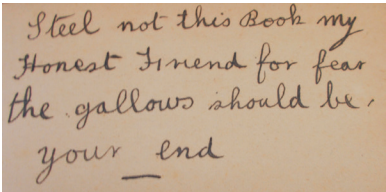 Steel not this Book my
Honest Friend for fear
the gallows should be,
your end